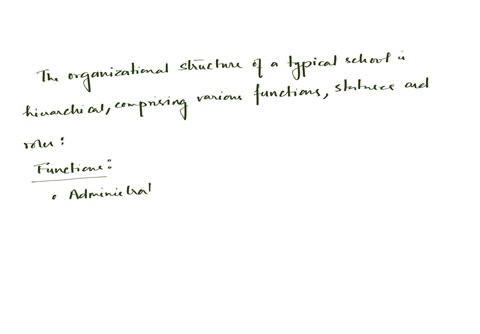 The organizational structure of a typical school is
hierarchical, comprising various functions, statuses and
roles:
Functions:
• Administrat